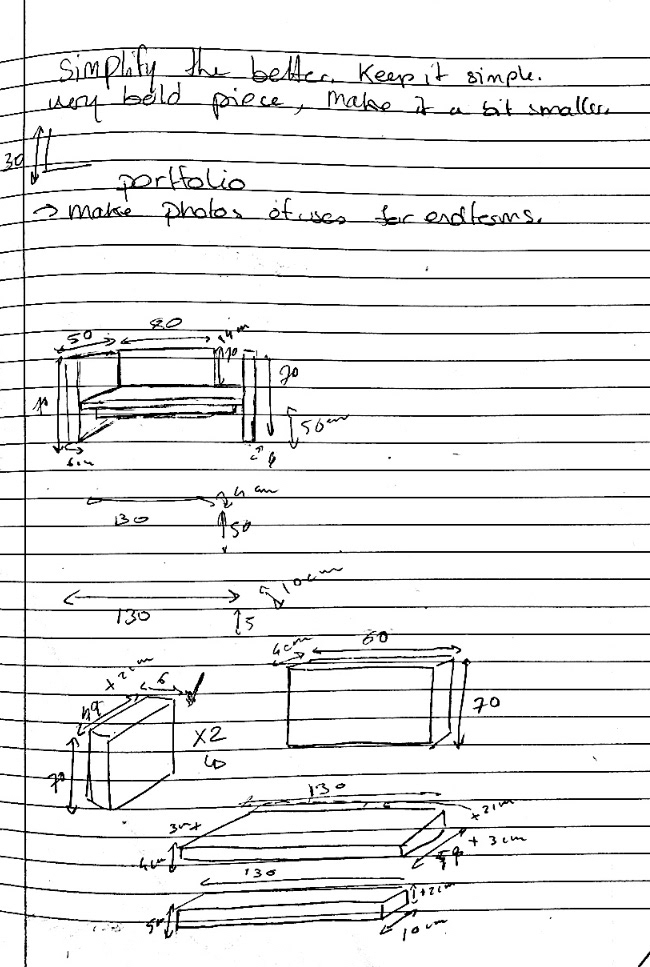 Simplify the better. Keep it simple.
very bold piece, make it a bit smaller.
30
portfolio
→ make photos of uses for endterms.
50
70
70
50cm
130
50
130
5
10cm
+2cm
6
X2
70
4cm
60
70
130
+2cm
+3cm
4cm
130
+2cm
10cm